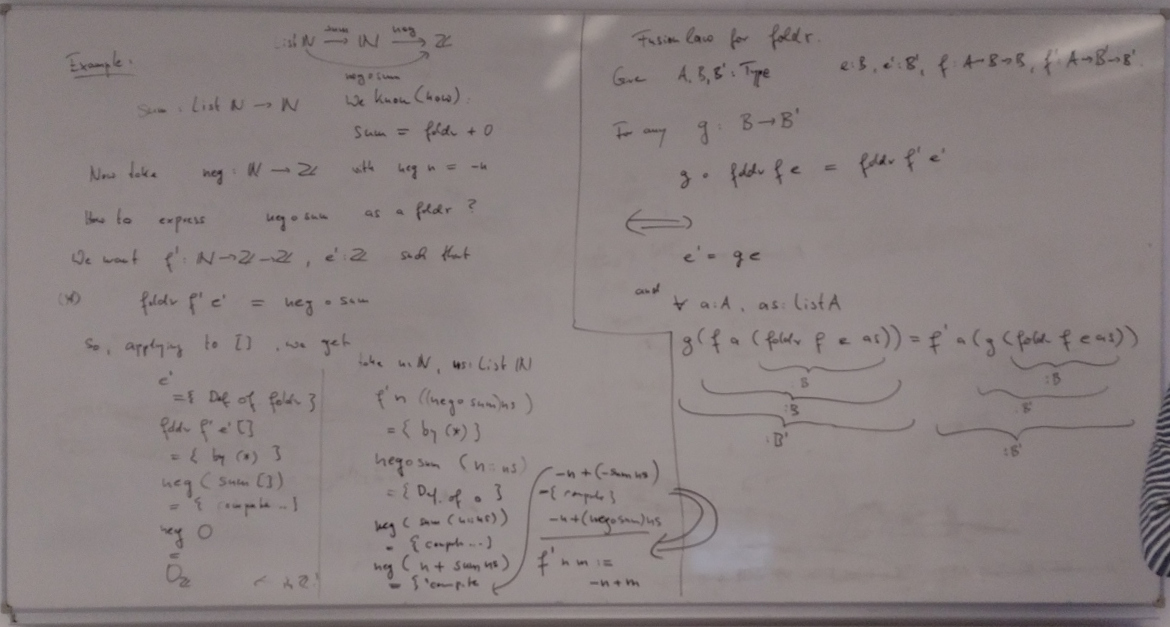 Example:
List ℕ —sum→ ℕ —neg→ ℤ
neg∘sum
sum : List ℕ → ℕ
We know (how).
sum = foldr + 0
Now take neg : ℕ → ℤ with neg n = -n
How to express neg∘sum as a foldr?
We want f' : ℕ→ℤ→ℤ, e' : ℤ such that
(*) foldr f' e' = neg∘sum
So, applying to [], we get
e'
= { Def of foldr }
foldr f' e' []
= { by (*) }
neg ( sum [] )
= { compute... }
neg 0
=
0ℤ
take n:ℕ, ns: List ℕ
f' n ((neg∘sum) ns)
= { by (*) }
neg∘sum (n::ns)
= { Def. of ∘ }
neg ( sum (n::ns))
= { compute...}
neg ( n + sum ns)
= { compute
-n + (-sum ns)
= { compute }
-n + (neg∘sum) ns
f' n m :=
-n + m
Fusion law for foldr.
Given A, B, B' : Type e:B, e':B', f: A→B→B, f': A→B'→B'
For any g : B → B'
g ∘ foldr f e = foldr f' e'
⟺
e' = g e
and
∀ a:A, as: List A
g( f a (foldr f e as)) = f' a (g (foldr f e as))
:B :B
:B :B'
:B' :B'